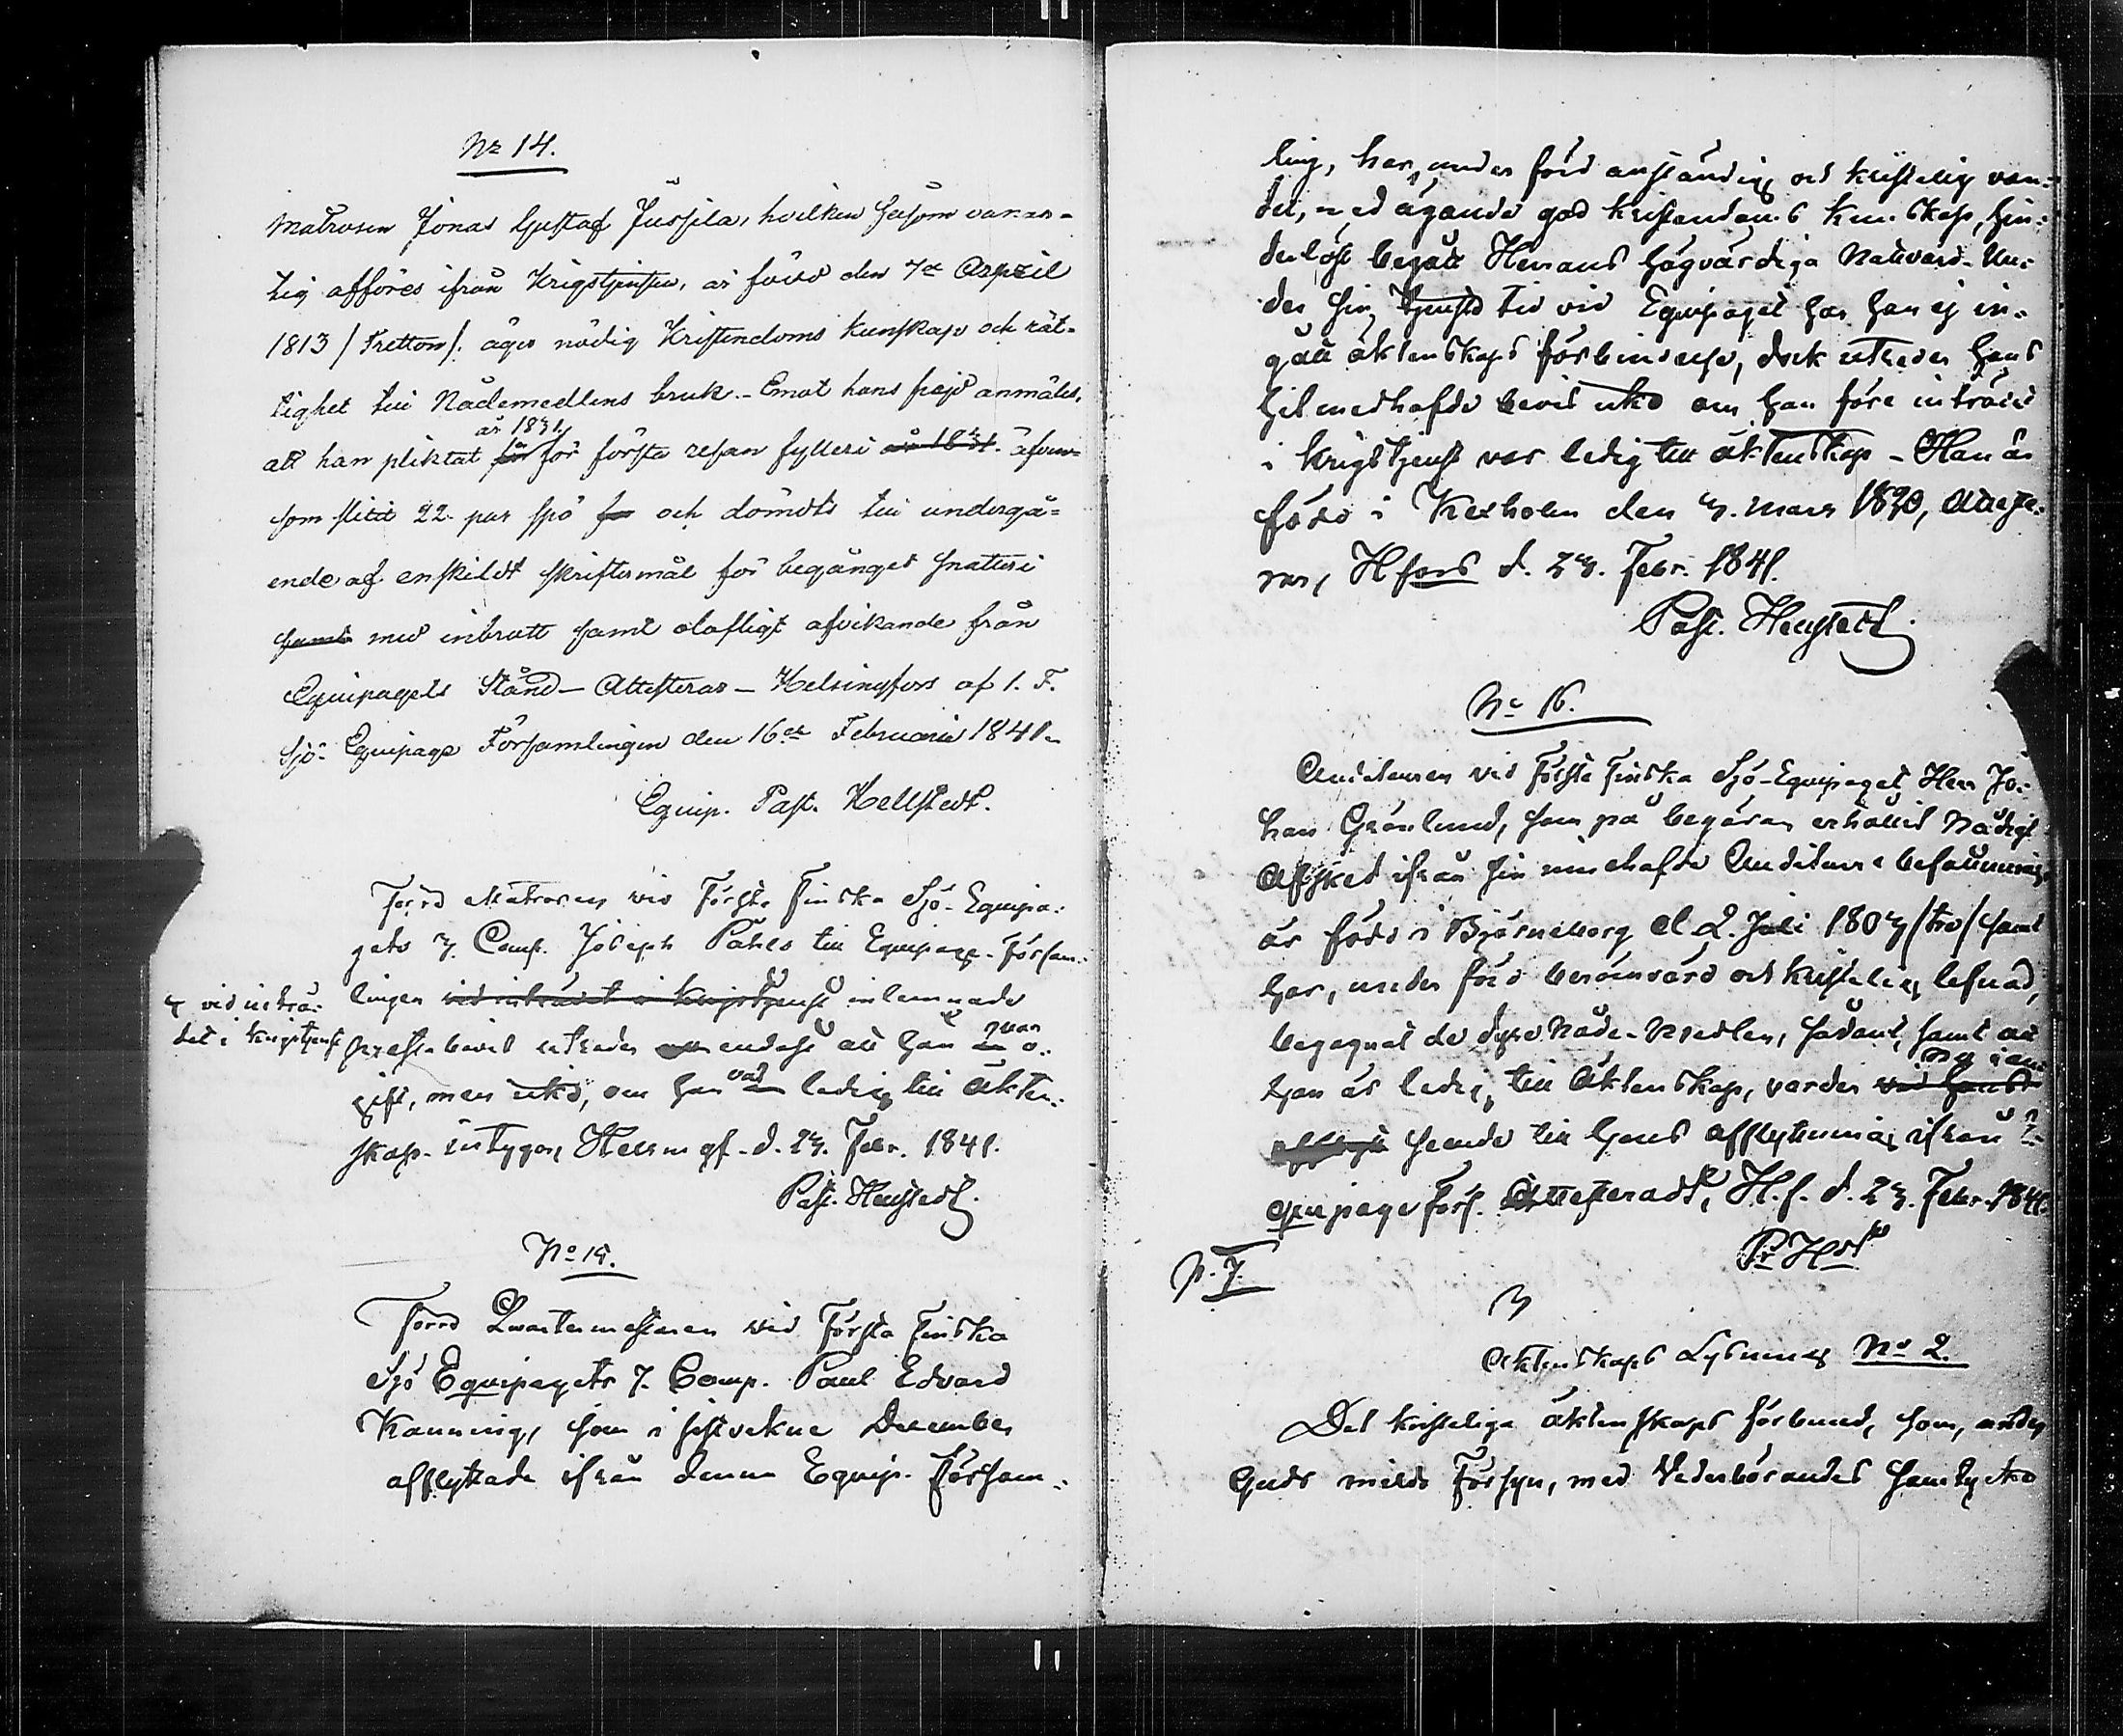 No 14.
Matrosen Jonas Gustaf Jussila, hvilken såsom vanar-
tig afföres ifrån Krigstjensten, är född den 7de April
1813 /:Tretton/: äger nödig Kristendoms kunskap och rät-
tighet till Nådemedlens bruk. - Emot hans frejd anmäles,
år 1831
att han pliktat för första resan fylleri år 1831. äfven-
som slitit 22 par spö och dömdts till undergå-
ende af enskildt skriftermål för begånget snatteri
samt med inbrott samt olofligt afvikande från
Equipagets Stånd - Attesteras - Helsingfors af 1. F.
Sjö-Equipage Församlingen den 16de Februarii 1841.
Equip. Past. Hellstedt.
Förrd Matrosen vid Första Finska Sjö-Equipa-
gets 7. Comp. Joseph Pahls till Equipage-Försam-
lingen vid inträdet i krigstjenst inlemnade
vid inträ-
det i krigstjenst
prestabevis utreder endast att han var o-
gift, men icke, om han var ledig till äkten-
skap. intygar, Helsingf. d. 23. Febr. 1841.
Past. Hellstedt.
No 15.
Förrd Quartermästaren vid Första Finska
Sjö Equipagets 7. Comp. Paul Edvard
Kanning, som i sistvekne December
afflyttade ifrån denna Equip. Försam-
ling, har, under förd anständig och kristelig van-
del, med ägande god kristendoms kunskap, hin-
derlöst begått Herrans högvärdiga Nattvard. Un-
der sin tjenste tid vid Equipaget har han ej in-
gått äktenskaps förbindelse, dock utreder hans
hitmedhafde bevis icke om han före inträdet
i krigstjenst var ledig till äktenskap - Han är
född i Kexholm den 7. Mars 1820, Atteste-
ras, Hfors d. 23. Febr. 1841.
Past. Hellstedt.
No 16.
Auditeuren vid Första Finska Sjö-Equipaget Herr Jo-
han Grönlund, som på begäran erhållit Nådigt
Afsked ifrån sin innehafde Auditeurs befattning,
är född i Björneborg d 2. Juli 1803 /tre/ samt
har, under förd berömvärd och kristelig lefnad,
begagnat de dyre Nåde-Medlen, sådant, samt att
han är ledig till Äktenskap, varder vid hans
seende till hans afflyttning ifrån E-
quipage förs. Attesteradt, H.f. d. 23. Febr. 1841.
Pr Hdt
N. 7.
Äktenskaps Lysning No 2.
Det kristeliga äktenskaps förbund, som, under
Guds milda Försyn, med Vederbörandes samtycke